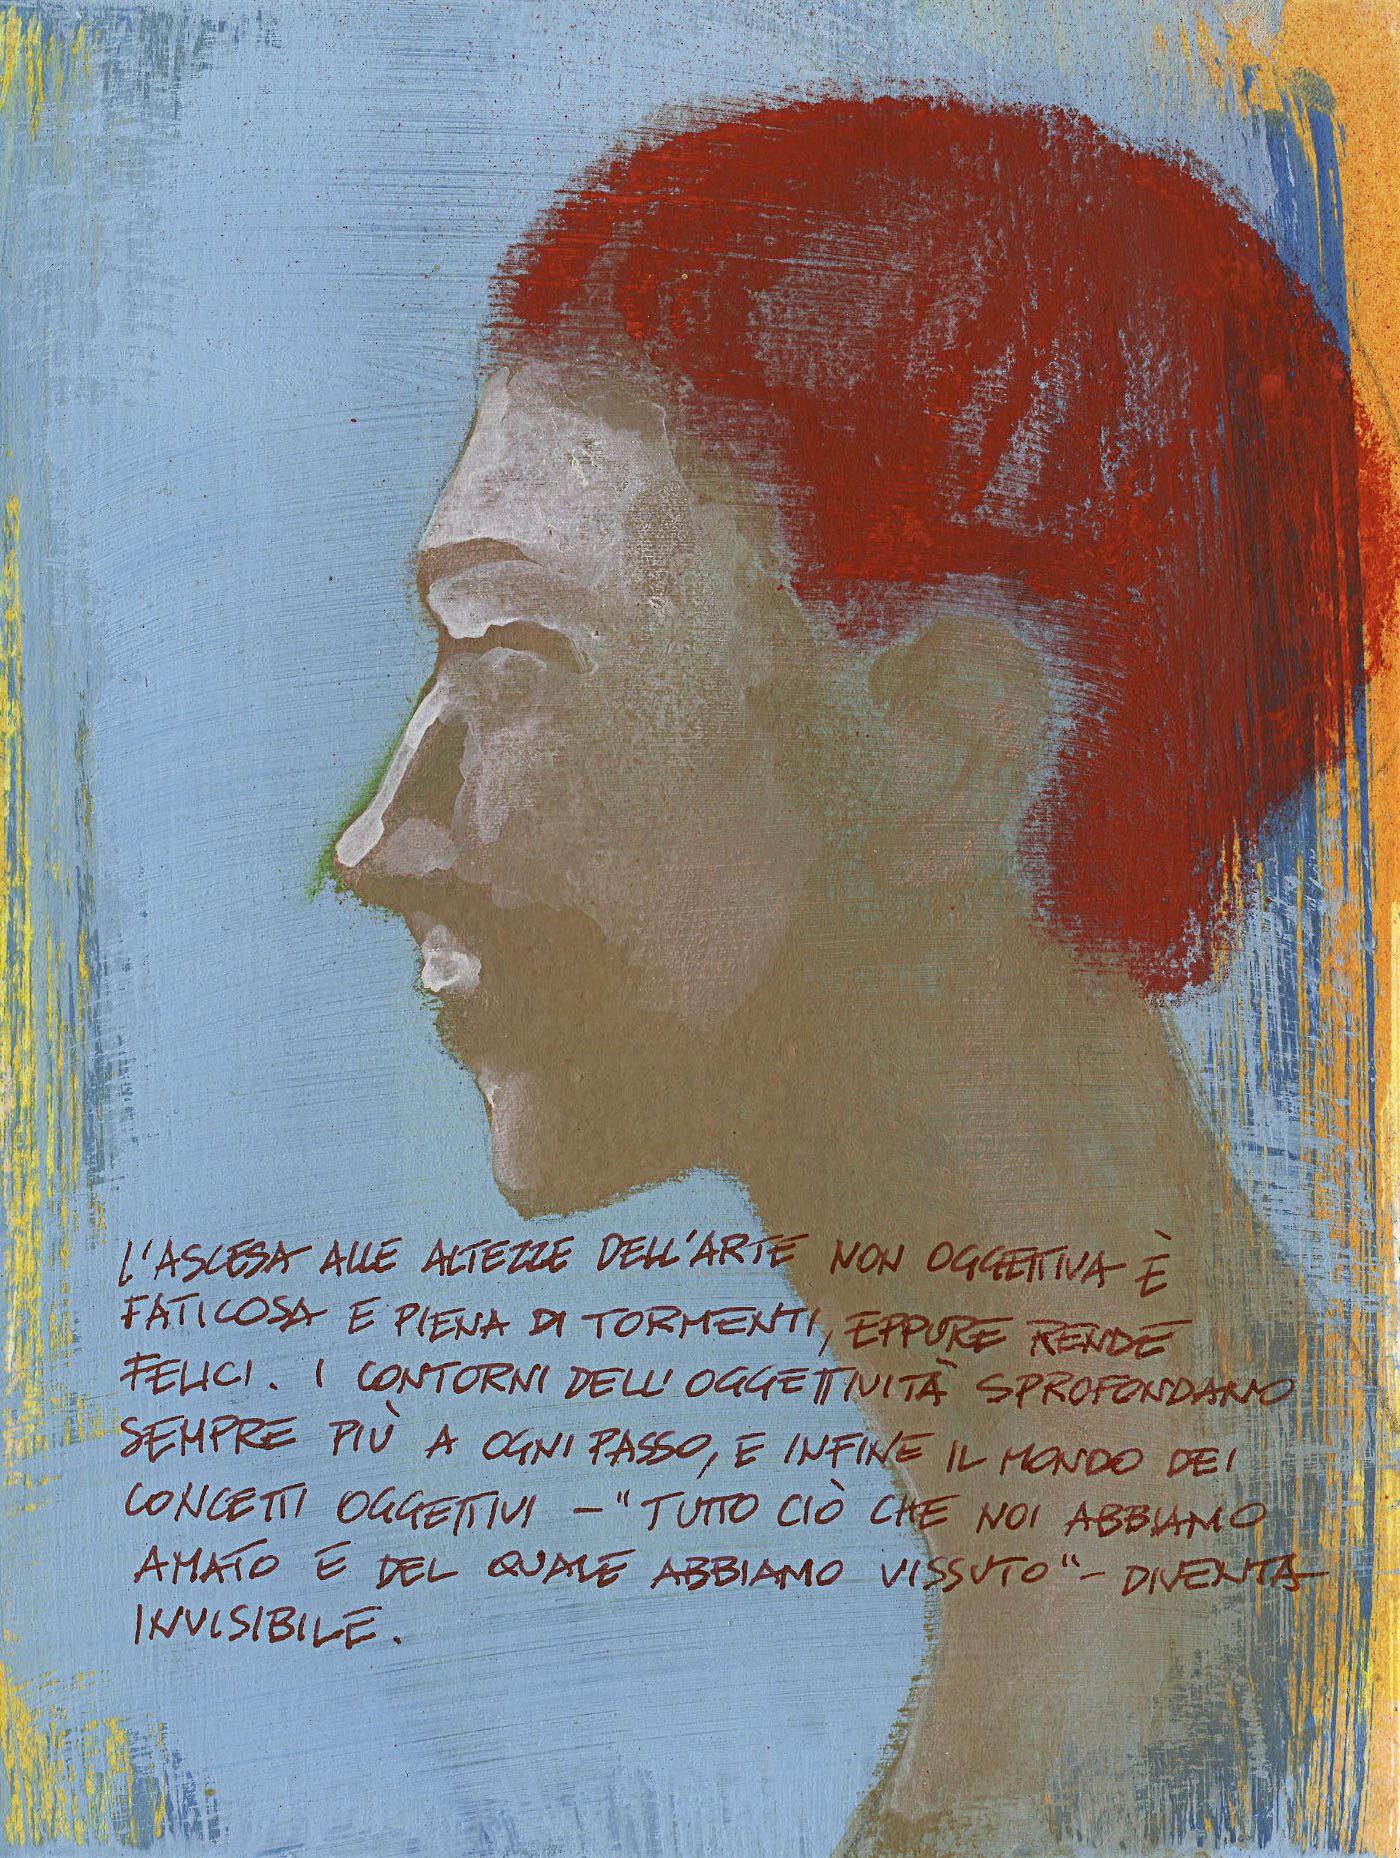 L'ASCESA ALLE ALTEZZE DELL'ARTE NON OGGETTIVA È
FATICOSA E PIENA DI TORMENTI, EPPURE RENDE
FELICI. I CONTORNI DELL'OGGETTIVITÀ SPROFONDANO
SEMPRE PIÙ A OGNI PASSO, E INFINE IL MONDO DEI
CONCETTI OGGETTIVI – "TUTTO CIÒ CHE NOI ABBIAMO
AMATO E DEL QUALE ABBIAMO VISSUTO" – DIVENTA
INVISIBILE.